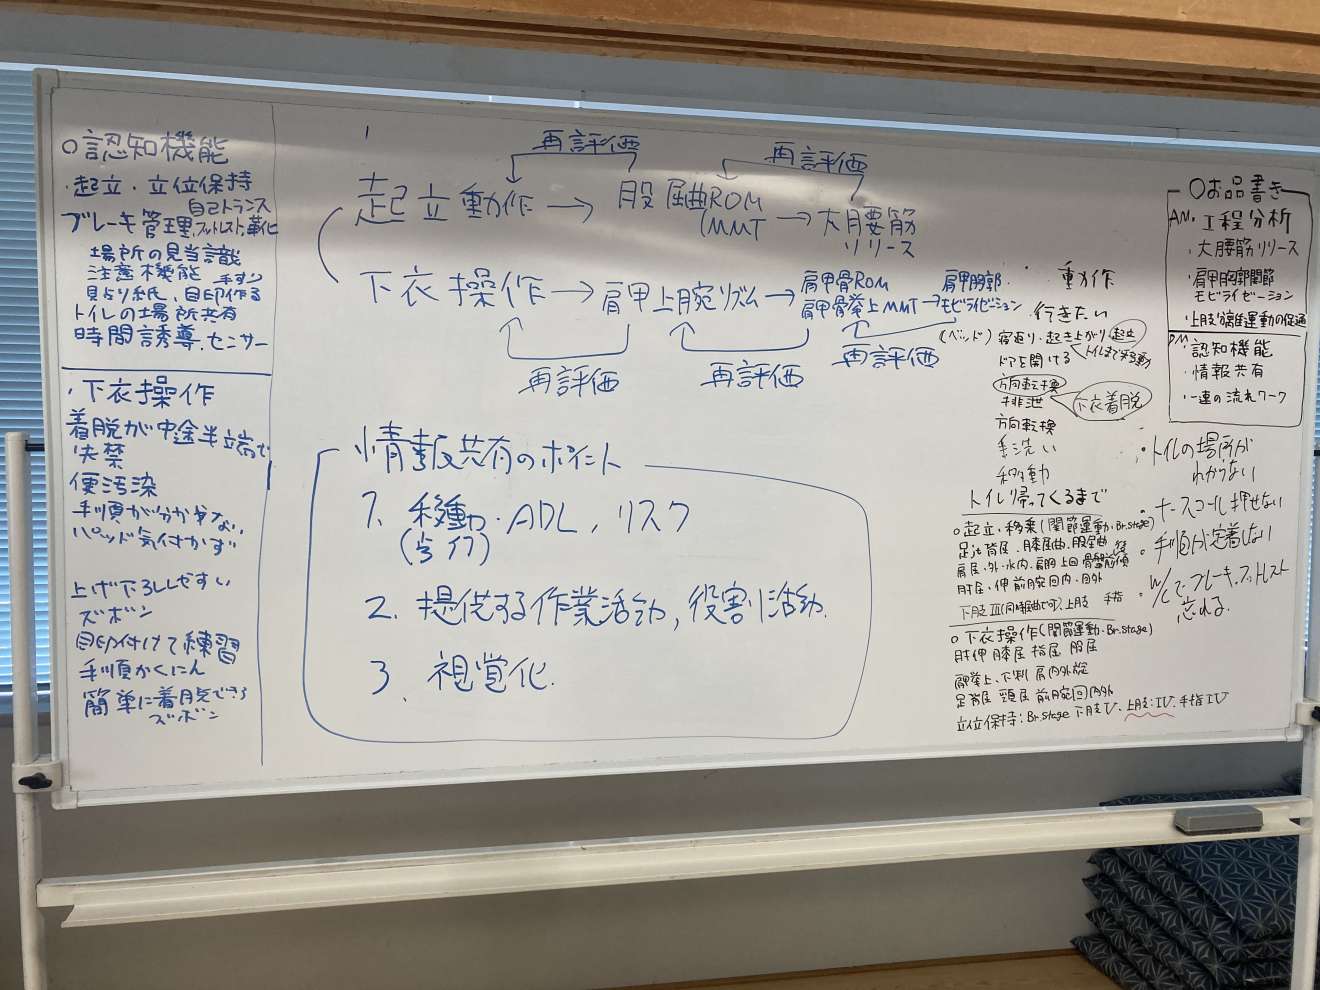 ○認知機能
・起立・立位保持
自己トランス
ブレーキ管理,フットレスト,革化
場所の見当識
注意機能 手すり
貼り紙、目印作る
トイレの場所共有
時間誘導、センサー
・下衣操作
着脱が中途半端で
失禁
便汚染
手順が分からない
パッド気付かず
上げ下ろししやすい
ズボン
目印付けて練習
手順かくにん
簡単に着脱できる
ズボン
再評価
再評価
起立動作→股屈曲ROM
(MMT→大腰筋
リリース
下衣操作→肩甲上腕リズム→肩甲骨ROM
肩甲骨挙上MMT→肩甲胸郭
モビライゼーション
再評価
再評価
再評価
情報共有のポイント
1、移動・ADL、リスク
(歩行)
2、提供する作業活動,役割活動.
3、視覚化.
・動作
行きたい
(ベッド)寝返り・起き上がり・起立
ドアを開ける トイレまで移動
方向転換
排泄 下衣着脱
方向転換
手洗い
移動
トイレ帰ってくるまで
○起立、移乗(関節運動・Br.stage)
足背屈、膝屈曲、股屈曲
肘屈、伸 前腕回内・回外
上肢 手指
○下衣操作(関節運動・Br.stage)
肘伸 膝屈 指屈 股屈
肩甲挙上、下制 肩内外旋
足背屈 頸屈 前腕回内外
立位保持:Br.stage 下肢Ⅴ、上肢:Ⅳ、手指Ⅳ
○お品書き
AM・工程分析
・大腰筋リリース
・肩甲胸郭関節
モビライゼーション
・上肢分離運動の促通
PM・認知機能
・情報共有
・一連の流れワーク
・トイレの場所が
わからない
・ナースコール押せない
・手順が定着しない
・W/Cで、ブレーキ、フットレスト
忘れる